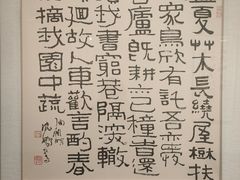 夏艸木長繞屋樹扶
眾鳥欣有託吾亦愛
廬既耕亦已種旹還
我書窮巷隔深轍
迴故人車歡言酌春
摘我園中蔬